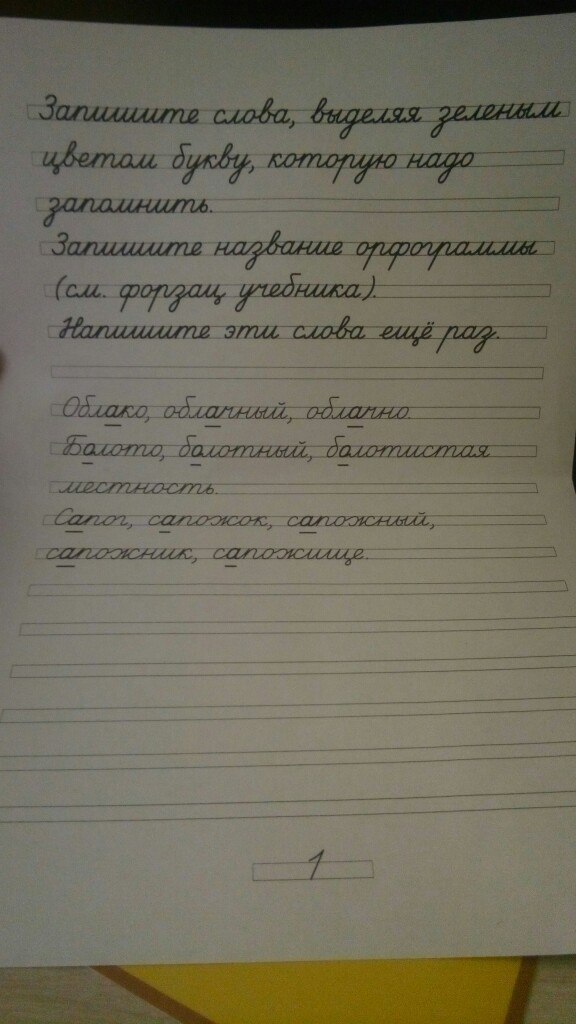 Запишите слова, выделяя зеленым
цветом букву, которую надо
запомнить.
Запишите название орфограммы
(см. форзац учебника).
Напишите эти слова ещё раз.
Облако, облачный, облачно.
Болото, болотный, болотистая
местность.
Сапог, сапожок, сапожный,
сапожник, сапожище.
1